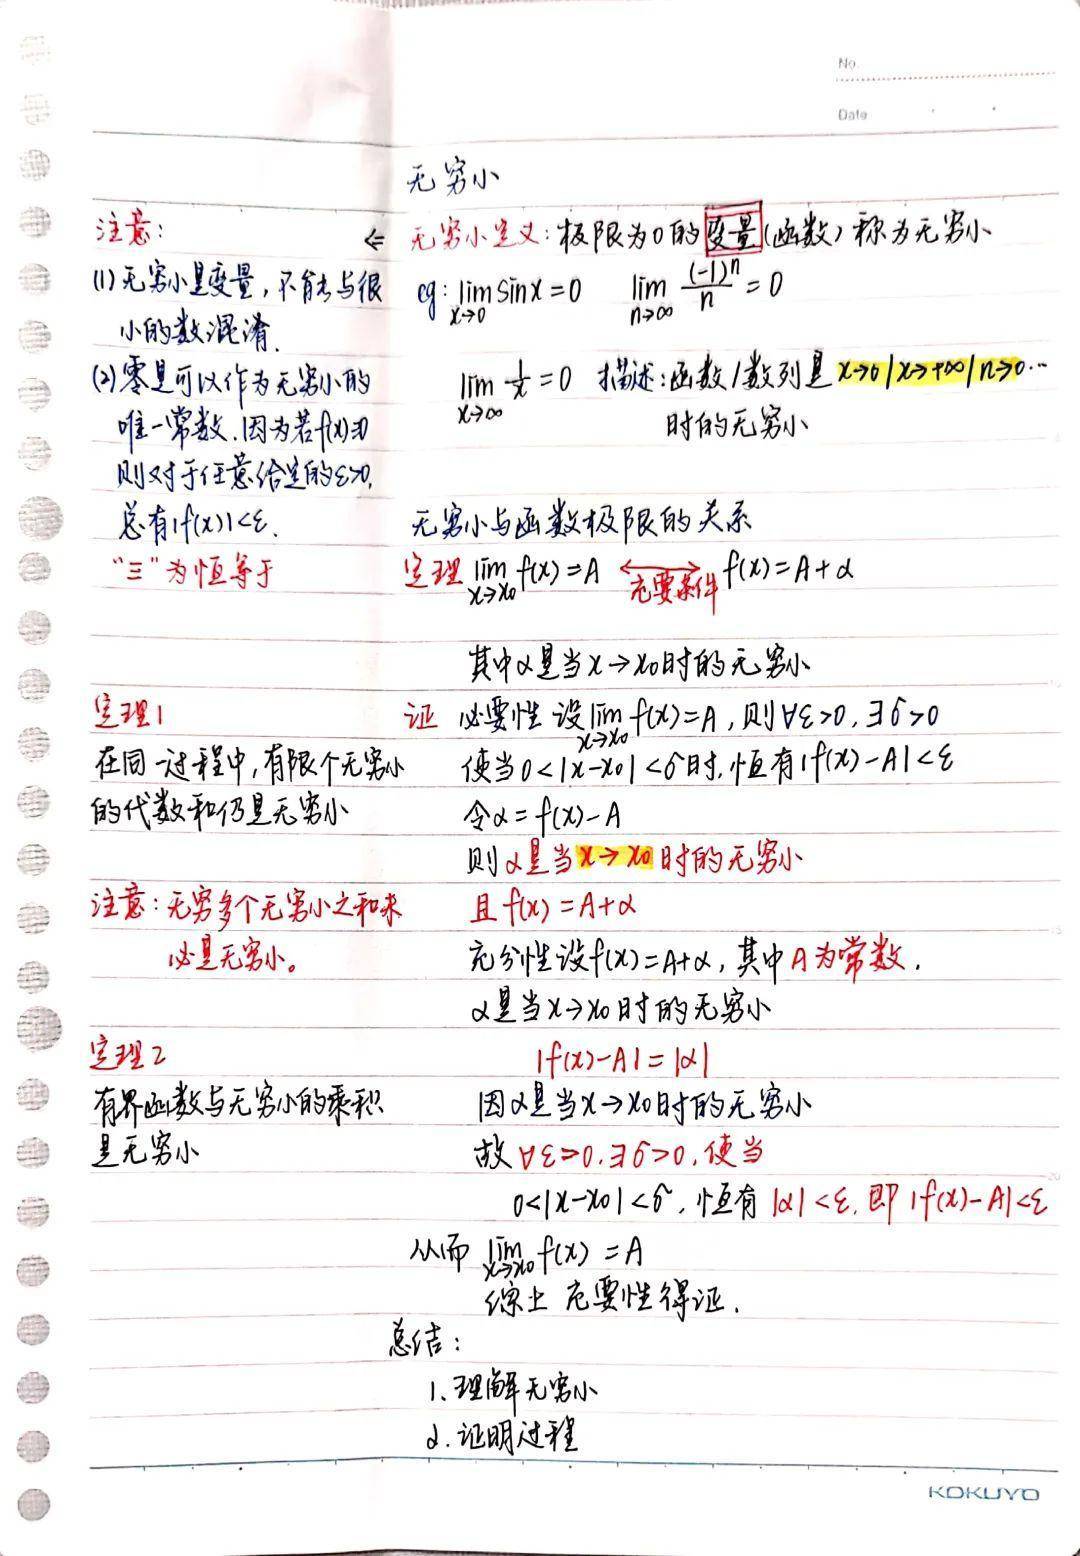 No.
Date
无穷小
注意:
(1)无穷小是变量,不能与很
小的数混淆.
(2)零是可以作为无穷小的
唯一常数.因为若f(x)≡0
则对于任意给定的ε>0,
总有|f(x)|<ε.
"≡"为恒等于
定理1
在同一过程中,有限个无穷小
的代数和仍是无穷小
注意:无穷多个无穷小之和未
必是无穷小。
定理2
有界函数与无穷小的乘积
是无穷小
⇐ 无穷小定义:极限为0的变量(函数)称为无穷小
eg: lim x→0 sinx=0 lim n→∞ (-1)^n/n=0
lim x→∞ 1/x=0 描述:函数/数列是x→0|x→+∞|n→0…
时的无穷小
无穷小与函数极限的关系
定理 lim x→x0 f(x)=A ⟷ 充要条件 f(x)=A+α
其中α是当x→x0时的无穷小
证 必要性 设lim x→x0 f(x)=A,则∀ε>0,∃δ>0
使当0<|x-x0|<δ时,恒有|f(x)-A|<ε
令α=f(x)-A
则α是当x→x0时的无穷小
且f(x)=A+α
充分性设f(x)=A+α,其中A为常数.
α是当x→x0时的无穷小
|f(x)-A|=|α|
因α是当x→x0时的无穷小
故∀ε>0.∃δ>0,使当
0<|x-x0|<δ,恒有|α|<ε,即|f(x)-A|<ε
从而 lim x→x0 f(x)=A
综上 充要性得证.
总结:
1.理解无穷小
2.证明过程
KOKUYO